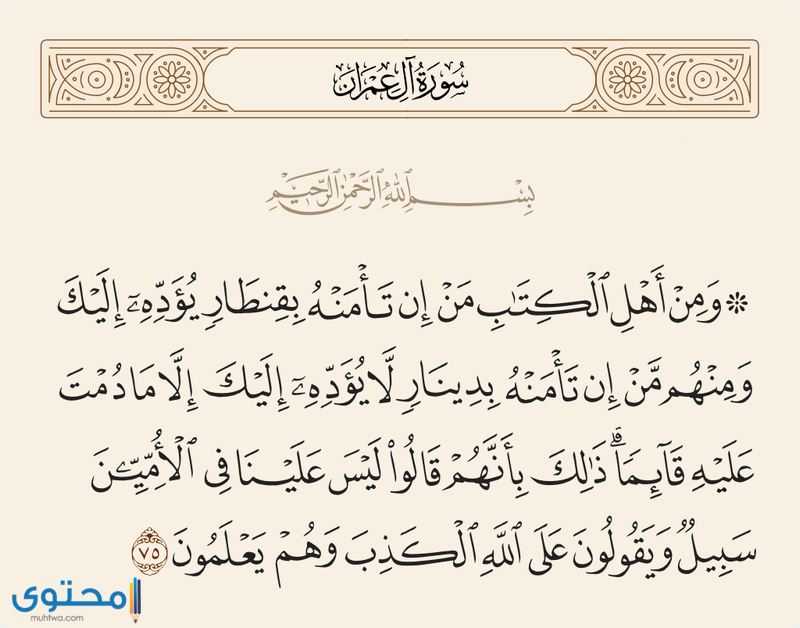 سُورَةُ آلِ عِمْرَانَ
بِسْمِ ٱللَّهِ ٱلرَّحْمَٰنِ ٱلرَّحِيمِ
۞ وَمِنْ أَهْلِ ٱلْكِتَٰبِ مَنْ إِن تَأْمَنْهُ بِقِنطَارٍ يُؤَدِّهِۦٓ إِلَيْكَ
وَمِنْهُم مَّنْ إِن تَأْمَنْهُ بِدِينَارٍ لَّا يُؤَدِّهِۦٓ إِلَيْكَ إِلَّا مَا دُمْتَ
عَلَيْهِ قَآئِمًا ۗ ذَٰلِكَ بِأَنَّهُمْ قَالُوا۟ لَيْسَ عَلَيْنَا فِى ٱلْأُمِّيِّـۧنَ
سَبِيلٌ وَيَقُولُونَ عَلَى ٱللَّهِ ٱلْكَذِبَ وَهُمْ يَعْلَمُونَ ٧٥
محتوى
muhtwa.com